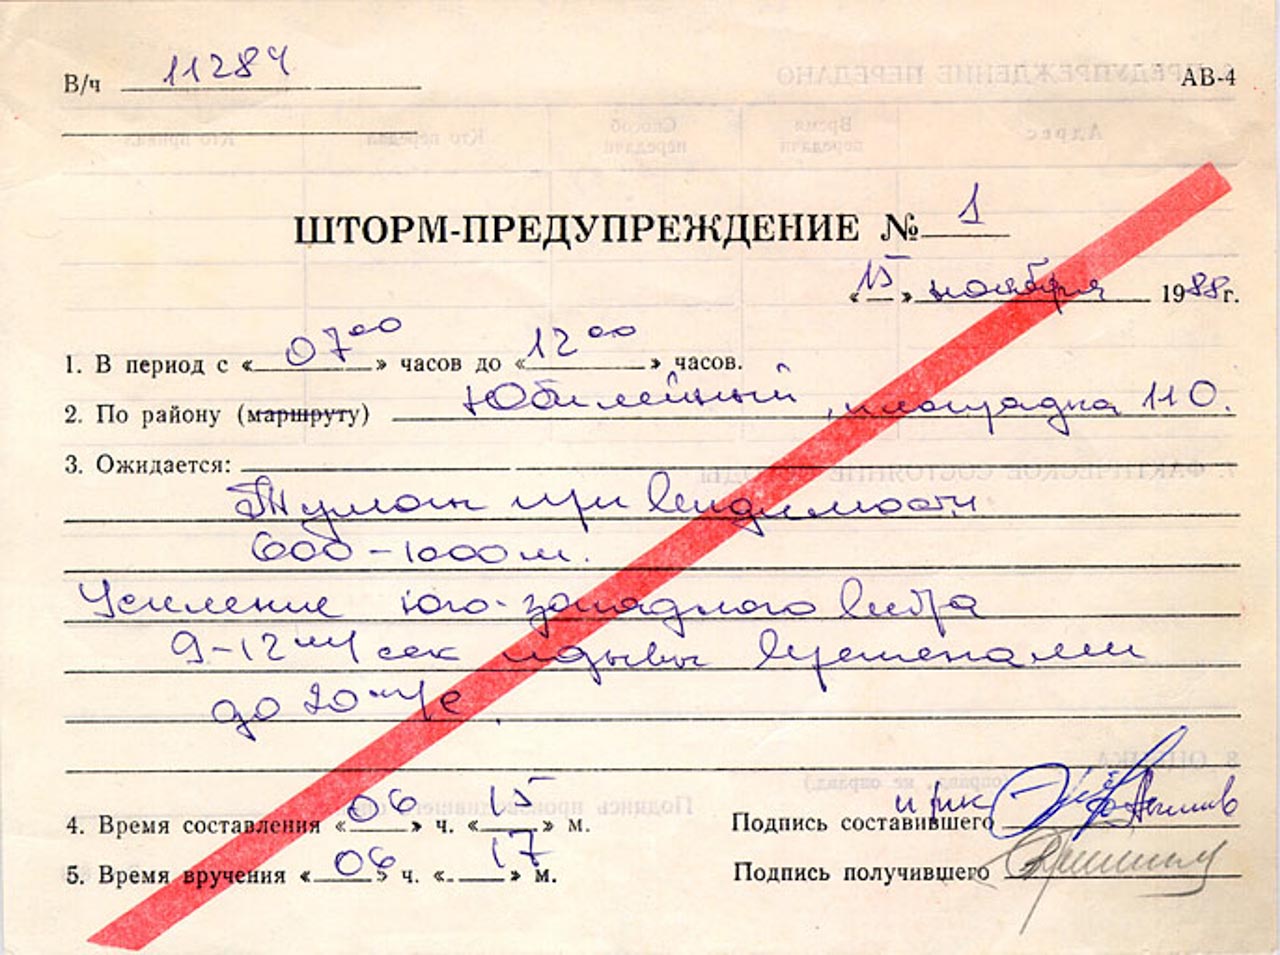 В/ч 11284
АВ-4
ШТОРМ-ПРЕДУПРЕЖДЕНИЕ № 1
«15» ноября 1988г.
1. В период с «07 00» часов до «12 00» часов.
2. По району (маршруту) Юбилейный, площадка 110.
3. Ожидается:
Туман при видимости
600-1000м.
Усиление юго-западного ветра
9-12 м/сек порывы временами
до 20 м/с.
4. Время составления «06» ч. «15» м. Подпись составившего
5. Время вручения «06» ч. «17» м. Подпись получившего